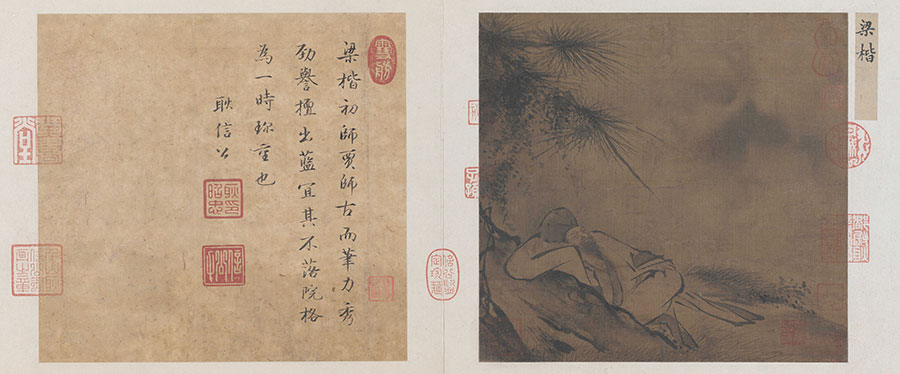 梁楷
梁楷初師賈師古而筆力秀
勁譽擅出藍宜其不落院格
為一時珍重也
耿信公